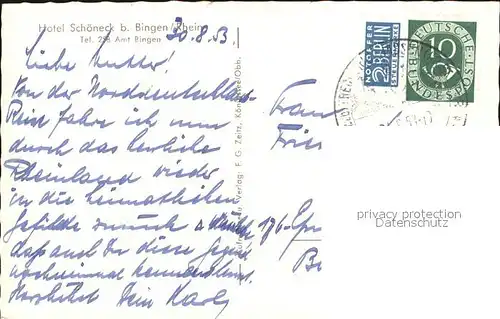 Hotel Schöneck b. Bingen/Rhein
Tel. 258 Amt Bingen
30.8.53.
Liebe Mutter!
Von der Norddeutschland-
Reise fahre ich nun
durch das herrliche
Rheinland wieder
in die heimatlichen
Gefilde zurück u. wünsche
daß auch Du diese Gegend
noch einmal kennenlernst.
Herzlichst Dein Karl
Verlag: F. G. Zeitz, Königsee/Obb.
NOTOPFER
2 BERLIN
STEUERMARKE
DEUTSCHE BUNDESPOST
10
Frau
Fries
privacy protection
Datenschutz